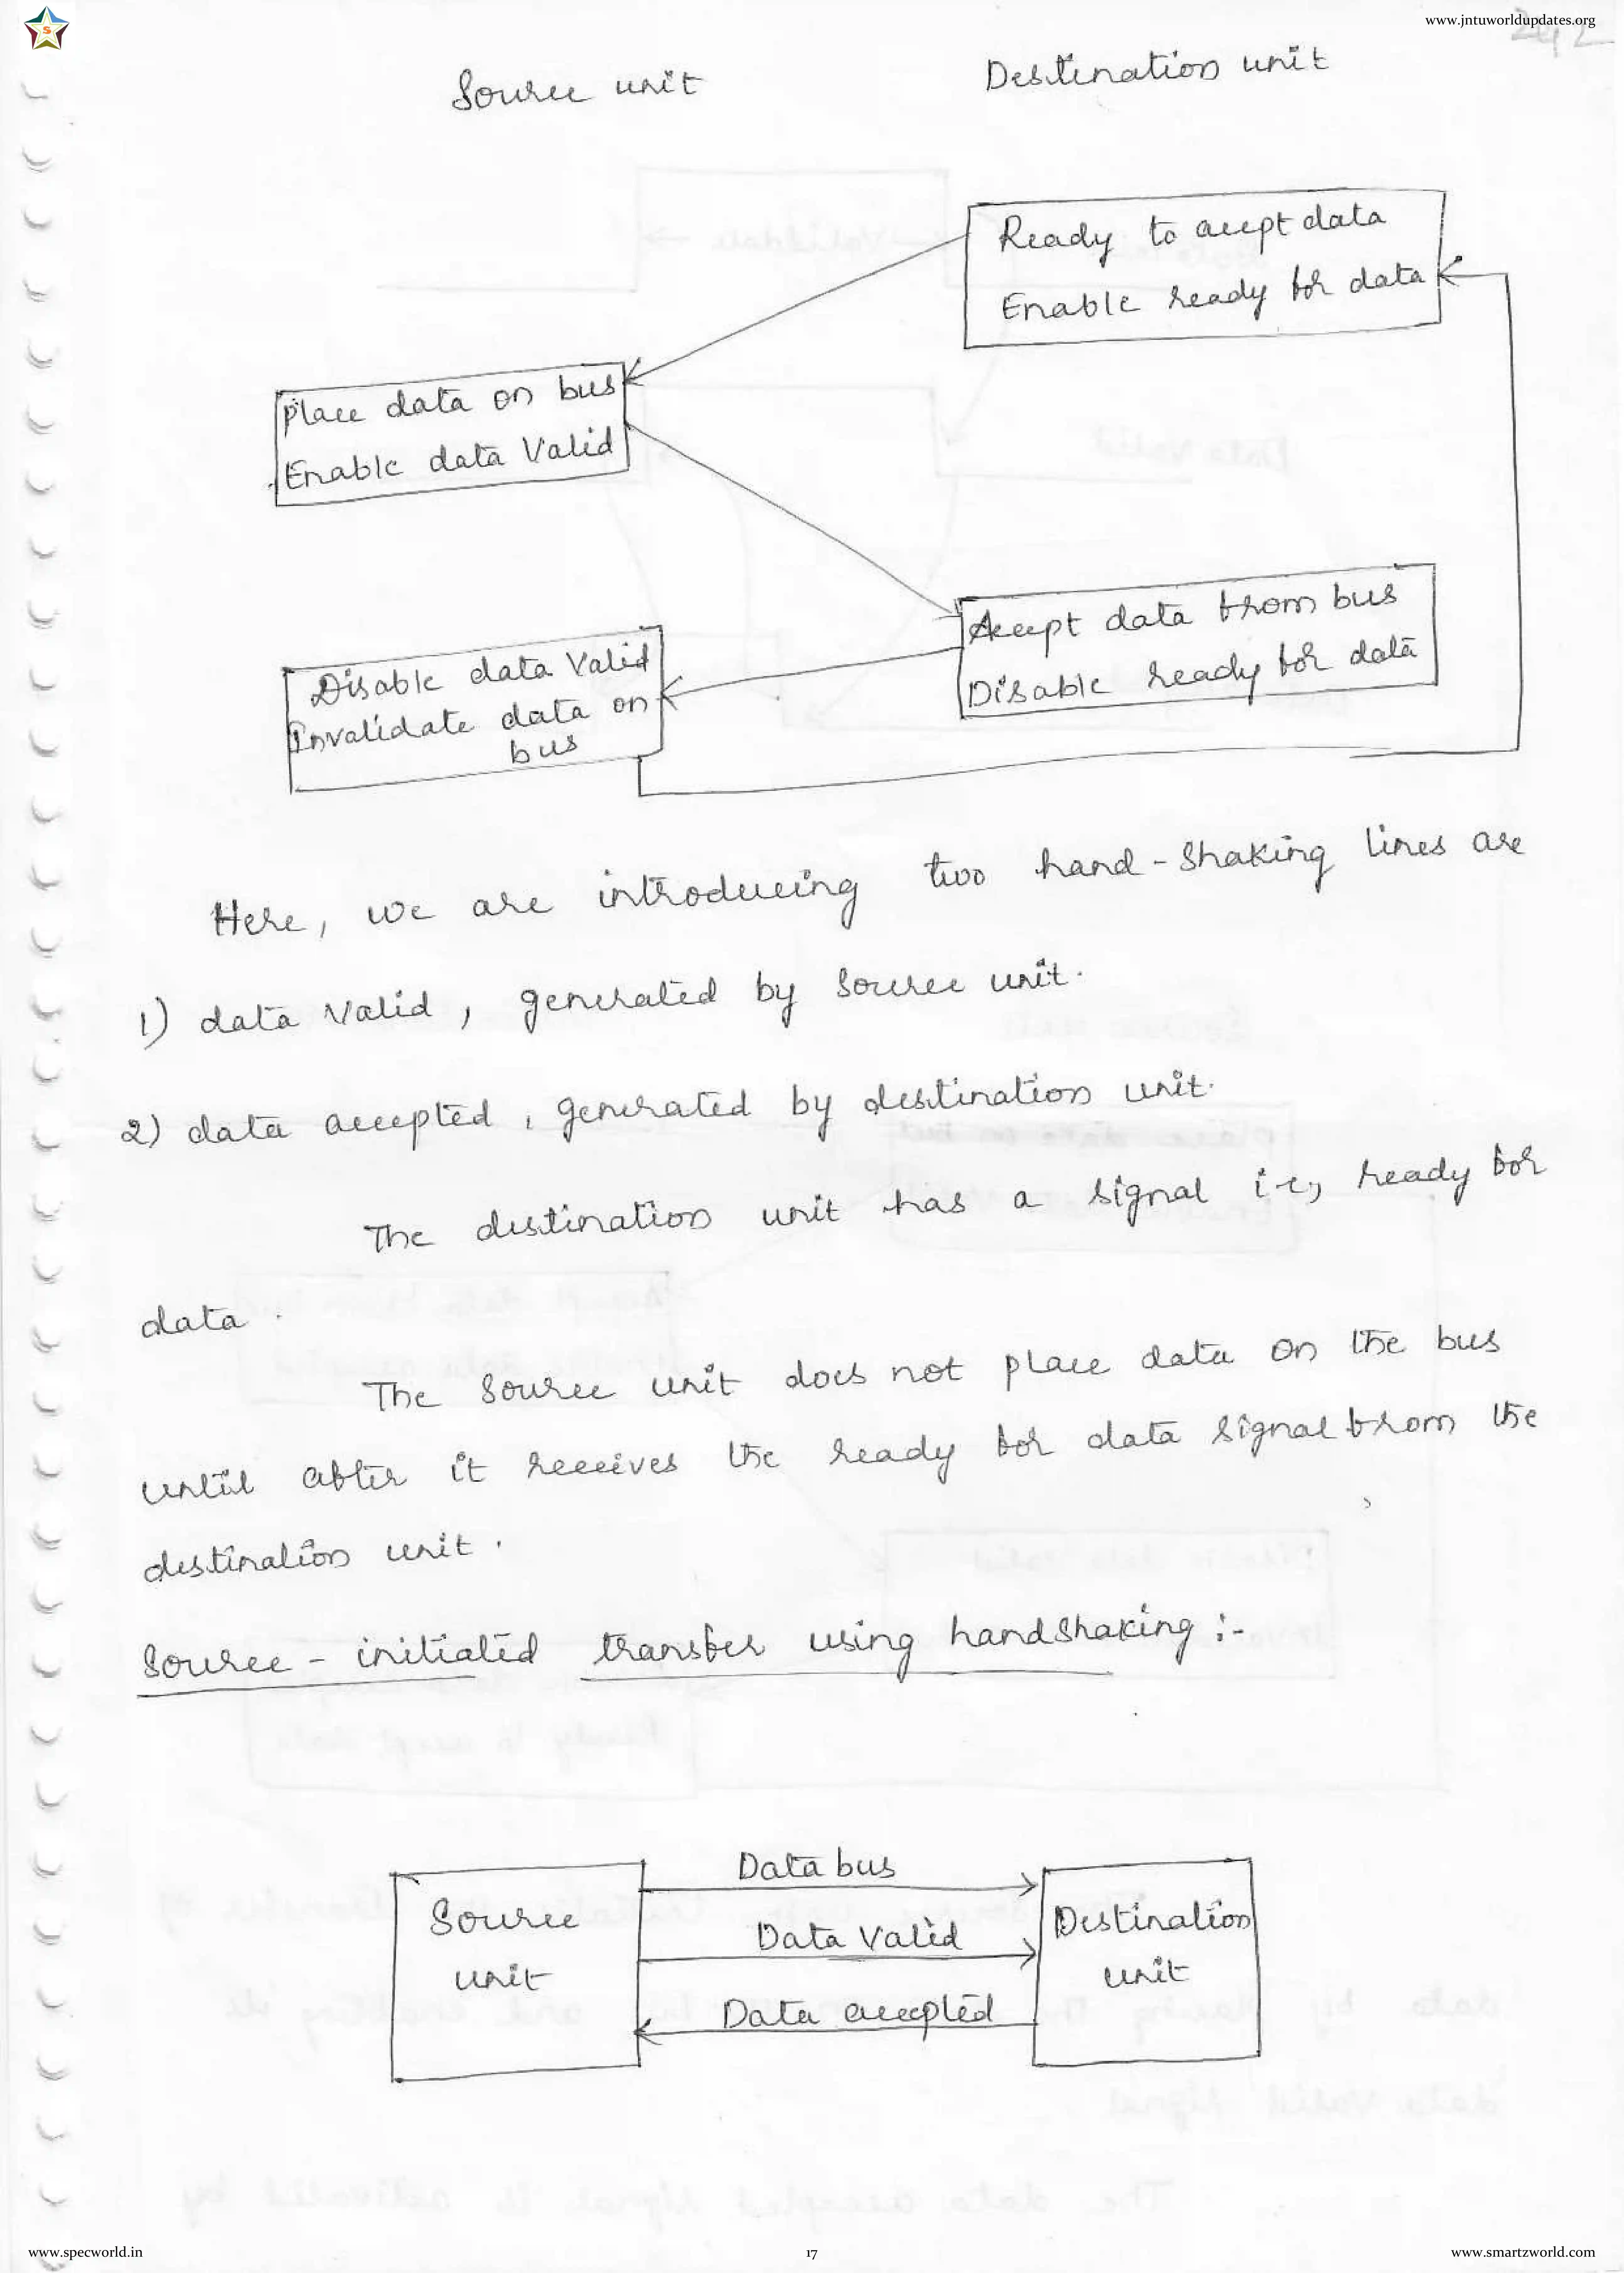 www.jntuworldupdates.org
Source unit
Destination unit
Ready to accept data
Enable ready for data
Place data on bus
Enable data Valid
Accept data from bus
Disable ready for data
Disable data Valid
Invalidate data on
bus
Here, we are introducing two hand-shaking lines are
1) data Valid, generated by source unit.
2) data accepted, generated by destination unit.
The destination unit has a signal i.e, ready for
data.
The source unit does not place data on the bus
until after it receives the ready for data signal from the
destination unit.
Source - initiated transfer using handshaking :-
Data bus
Source
unit
Data Valid
Destination
unit
Data accepted
www.specworld.in
17
www.smartzworld.com